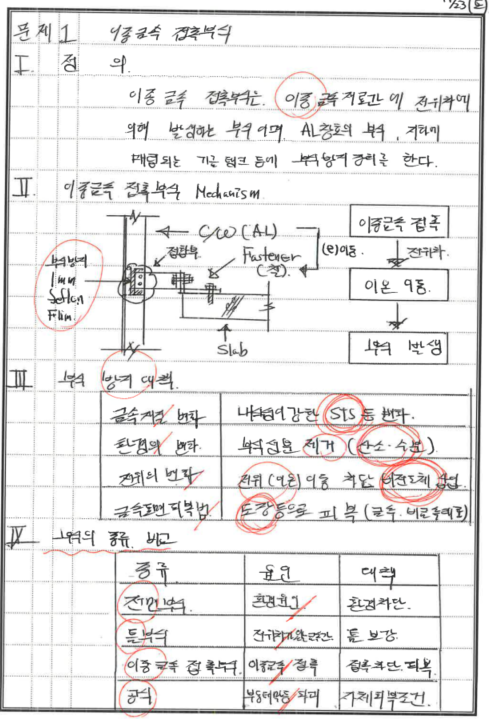 문제 1 이종금속 접촉부식
I. 정 의
이종 금속 접촉부식은. 이종 금속 재료간에 전위차에
의해 발생하는 부식이며, AL창호의 부식, 지하에
매립되는 기름 탱크 등에 부식방지 관리를 한다.
II. 이종금속 접촉부식 Mechanism
C/W (AL)
접합부.
Fastener
(철).
(e)이동.
Slab
부식방지
1mm
Film.
이종금속 접촉
전위차.
이온 이동.
부식 발생
III 부식 방지 대책.
금속재료 변화 내식성이 강한 STS 등 변화.
환경의 변화. 부식 환경 제거 (산소·수분).
전위의 변화 전위(이온) 이동 차단
금속표면 피복법 도장등으로 피복 (금속·비금속재료)
IV 부식의 종류. 비교
종류 요인 대책
전면부식 환경요인 환경차단.
틈부식 틈 보강.
이종금속 접촉부식. 이종금속 접촉 접촉차단. 피복.
공식 부동태막등 파괴